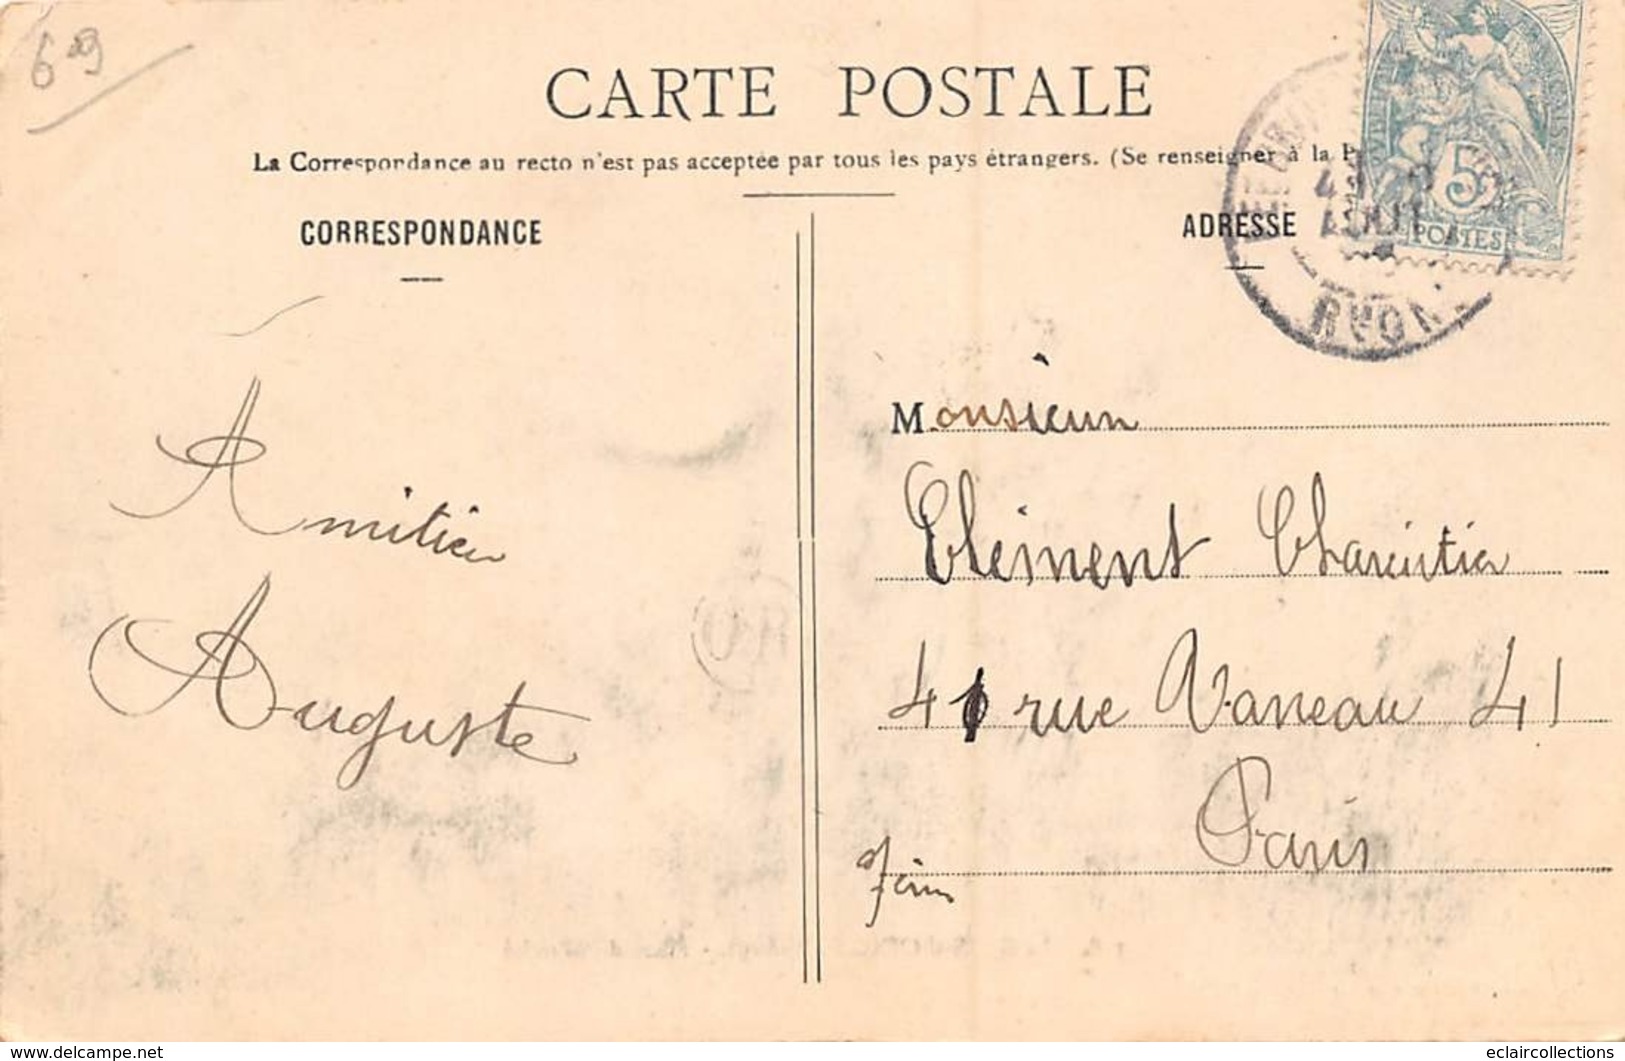 69
CARTE POSTALE
La Correspondance au recto n'est pas acceptée par tous les pays étrangers. (Se renseigner à la
CORRESPONDANCE
ADRESSE
5
POSTES
RHONE
Amitiés
Auguste
Monsieur
Clément Charentier
41 rue Vaneau 41
Paris
www.delcampe.net
eclaircollections